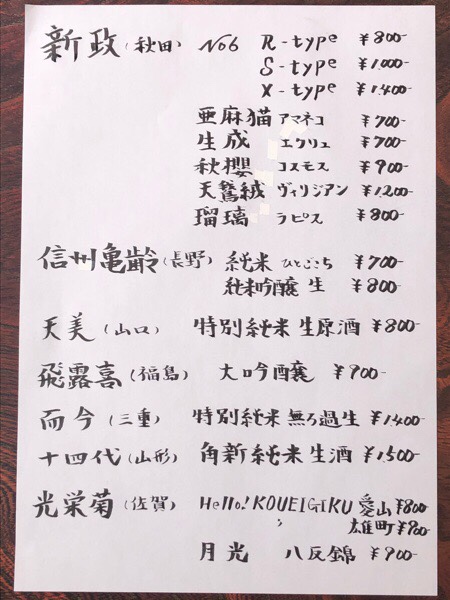 新政(秋田) No6 R-type ¥800-
S-type ¥1000-
X-type ¥1,400-
亜麻猫 アマネコ ¥700-
生成 エクリュ ¥700-
秋櫻 コスモス ¥900-
天鵞絨 ヴィリジアン ¥1,200-
瑠璃 ラピス ¥800-
信州亀齢(長野) 純米 ひとごこち ¥700-
純米吟醸 生 ¥800-
天美(山口) 特別純米 生原酒 ¥800-
飛露喜(福島) 大吟醸 ¥900-
而今(三重) 特別純米 無ろ過生 ¥1400-
十四代(山形) 角新純米生酒 ¥1,500-
光栄菊(佐賀) Hello! KOUEIGIKU 愛山 ¥800
〃 雄町 ¥900-
月光 八反錦 ¥900-